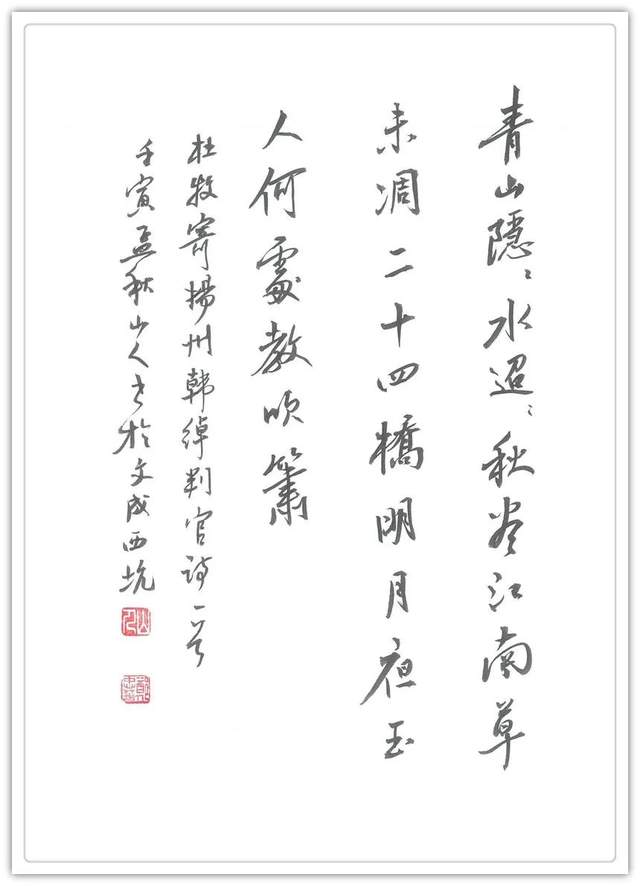 青山隱〻水迢〻秋盡江南草
未凋二十四橋明月夜玉
人何處教吹簫
杜牧寄揚州韓綽判官詩一首
壬寅孟秋山人書於文成西坑